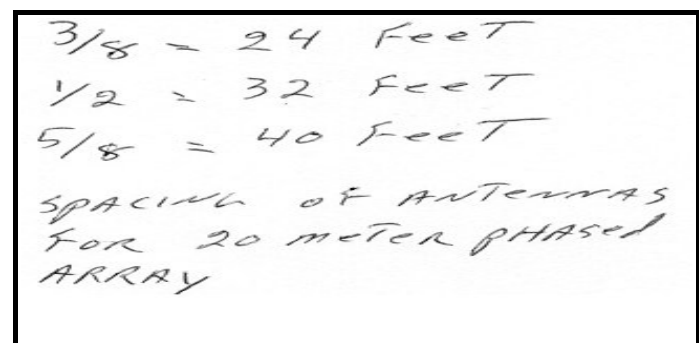 3/8 = 24 FeeT
1/2 = 32 FeeT
5/8 = 40 FeeT
SPACING OF ANTENNAS
FOR 20 meTeR PHASed
ARRAY